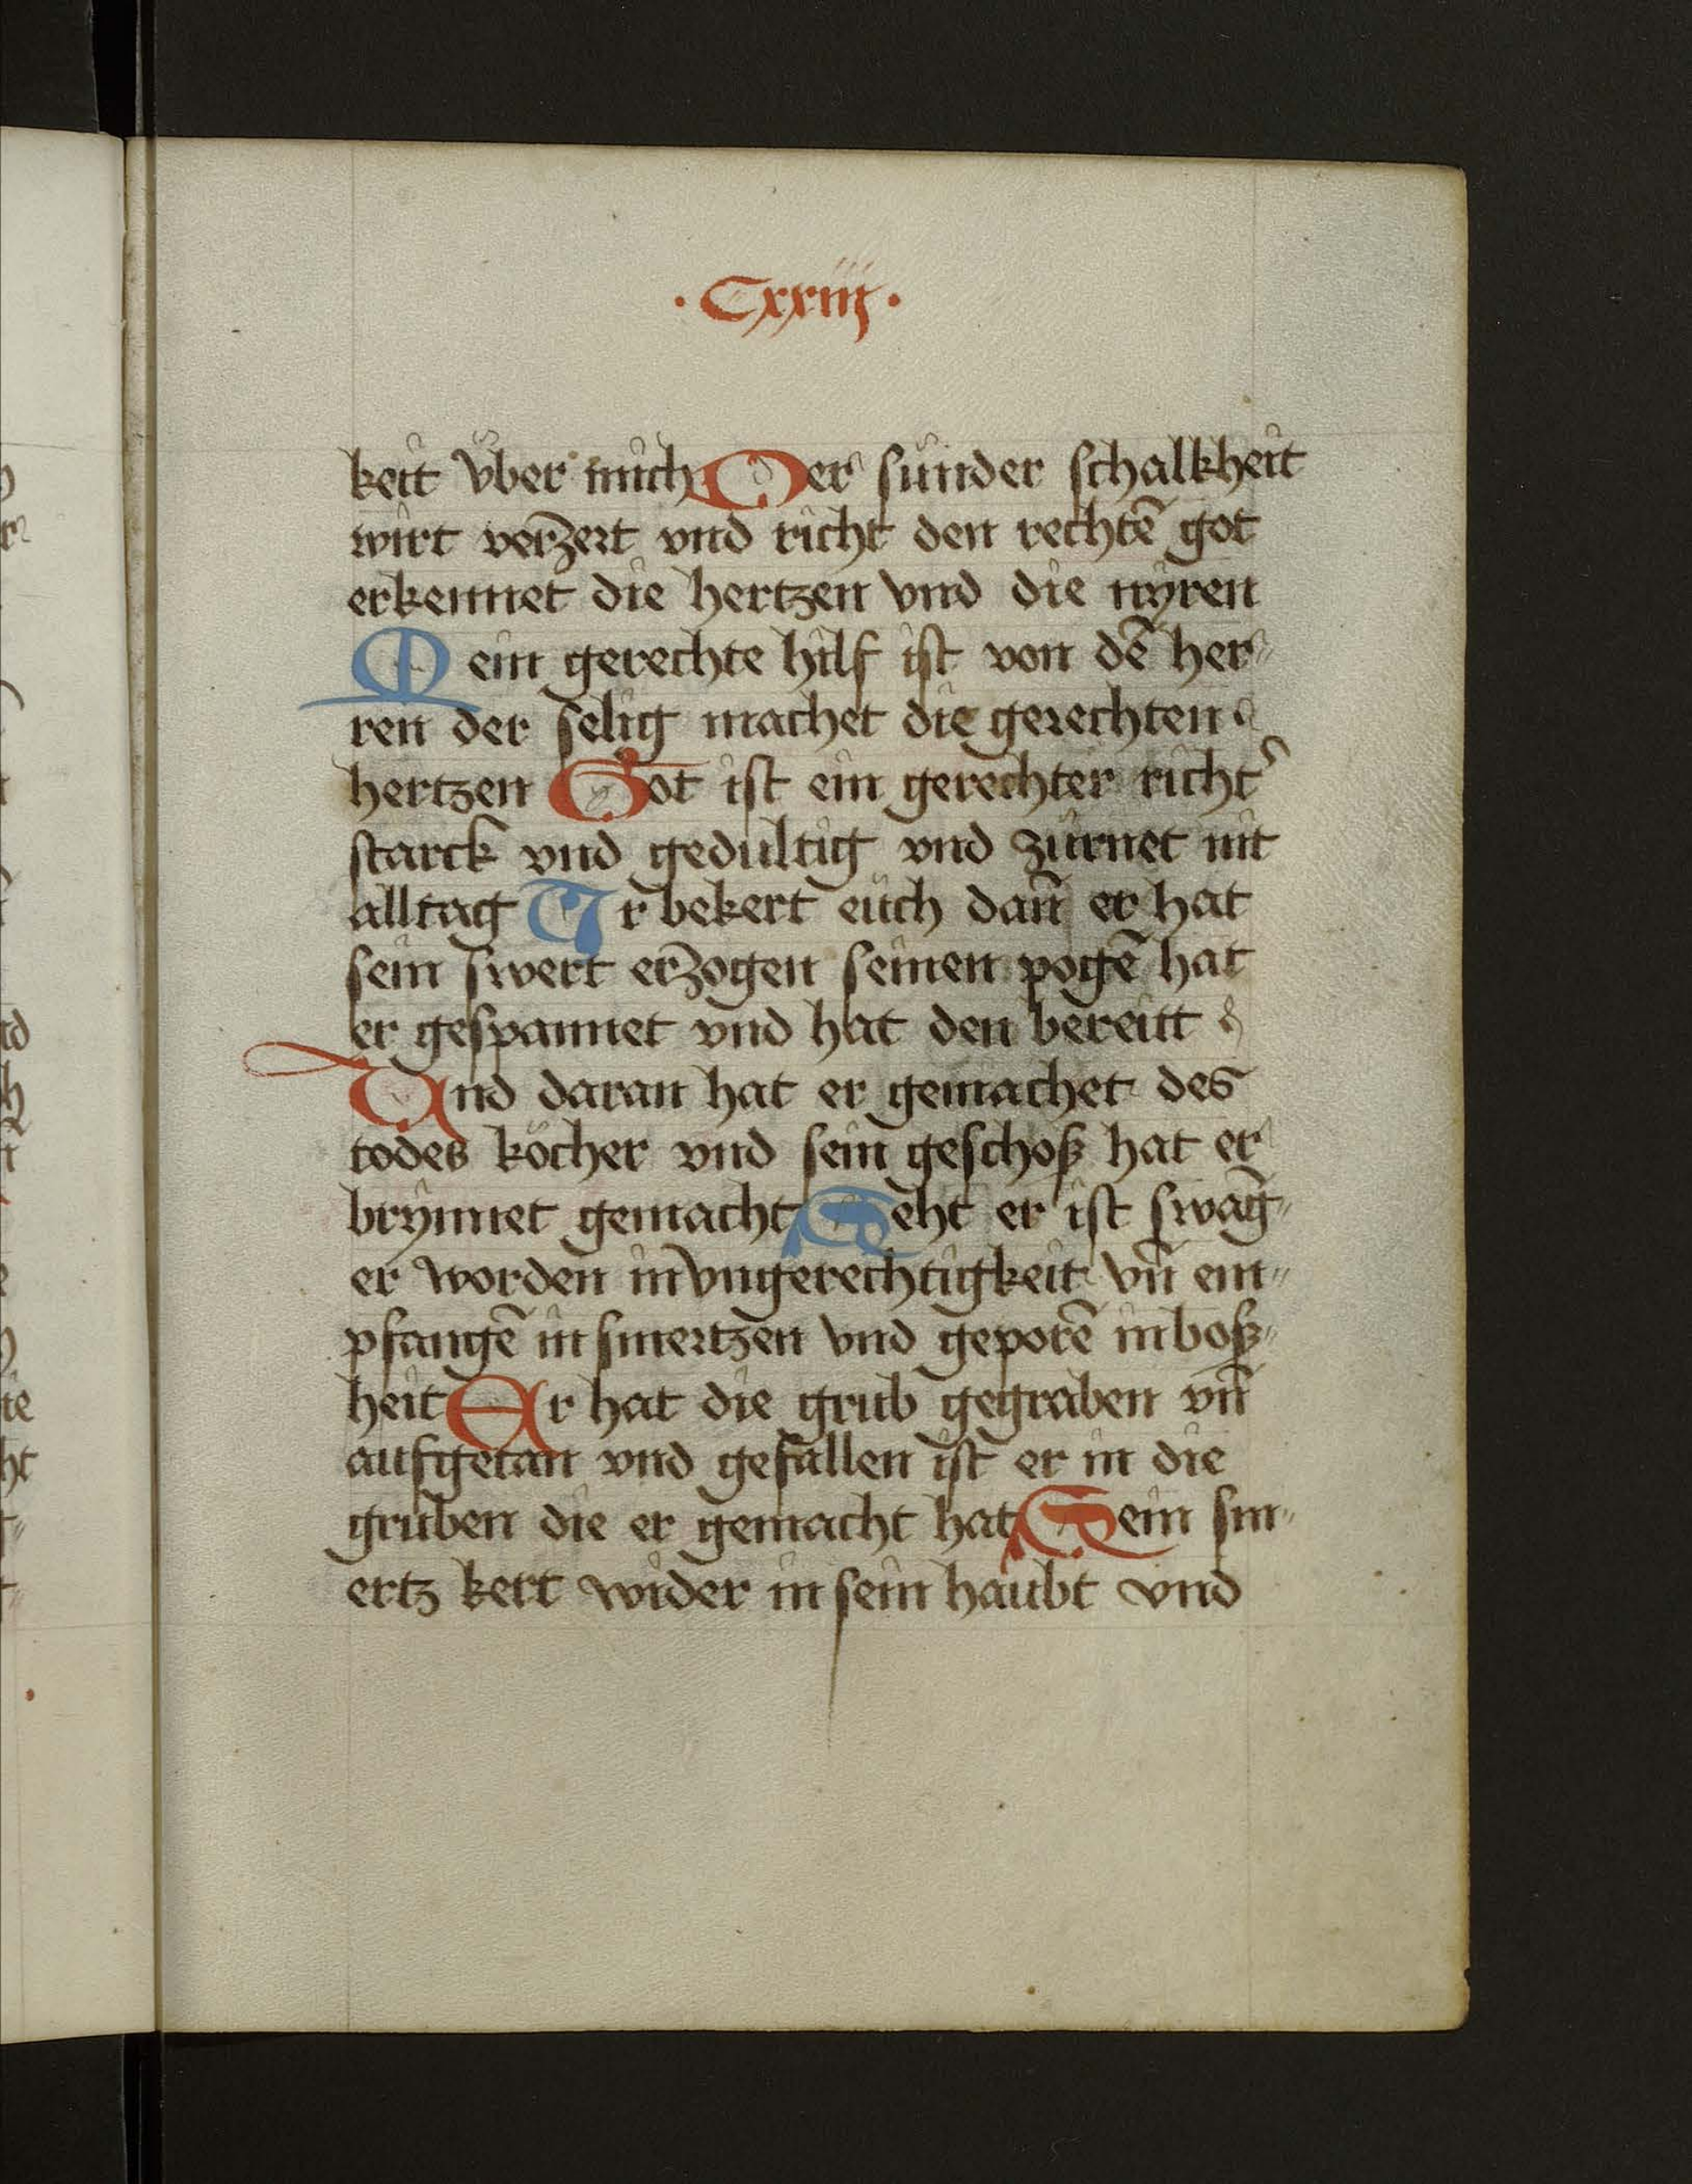 ·Cxxiiij·
keit vber mich Der sünder schalkheit
wirt verzert vnd richt den rechtē got
erkennet die hertzen vnd die nyren
Mein gerechte hilf ist von dē her„
ren der selig machet die gerechten
hertzen Got ist ein gerechter richt᷑
starck vnd gedultig vnd zürnet nit
alltag Ir bekert eüch dañ er hat
sein swert erzogen seinen pogē hat
er gespannet vnd hat den bereitt
Vnd daran hat er gemachet des
todes köcher vnd sein geschoß hat er
brynnet gemacht Seht er ist swāg„
er worden in vngerechtigkeit vñ em„
pfangē in smertzen vnd geporē in boß„
heit Er hat die grub gegraben vñ
aufgetan vnd gefallen ist er in die
gruben die er gemacht hat Sein sm„
ertz kert wider in sein haubt vnd